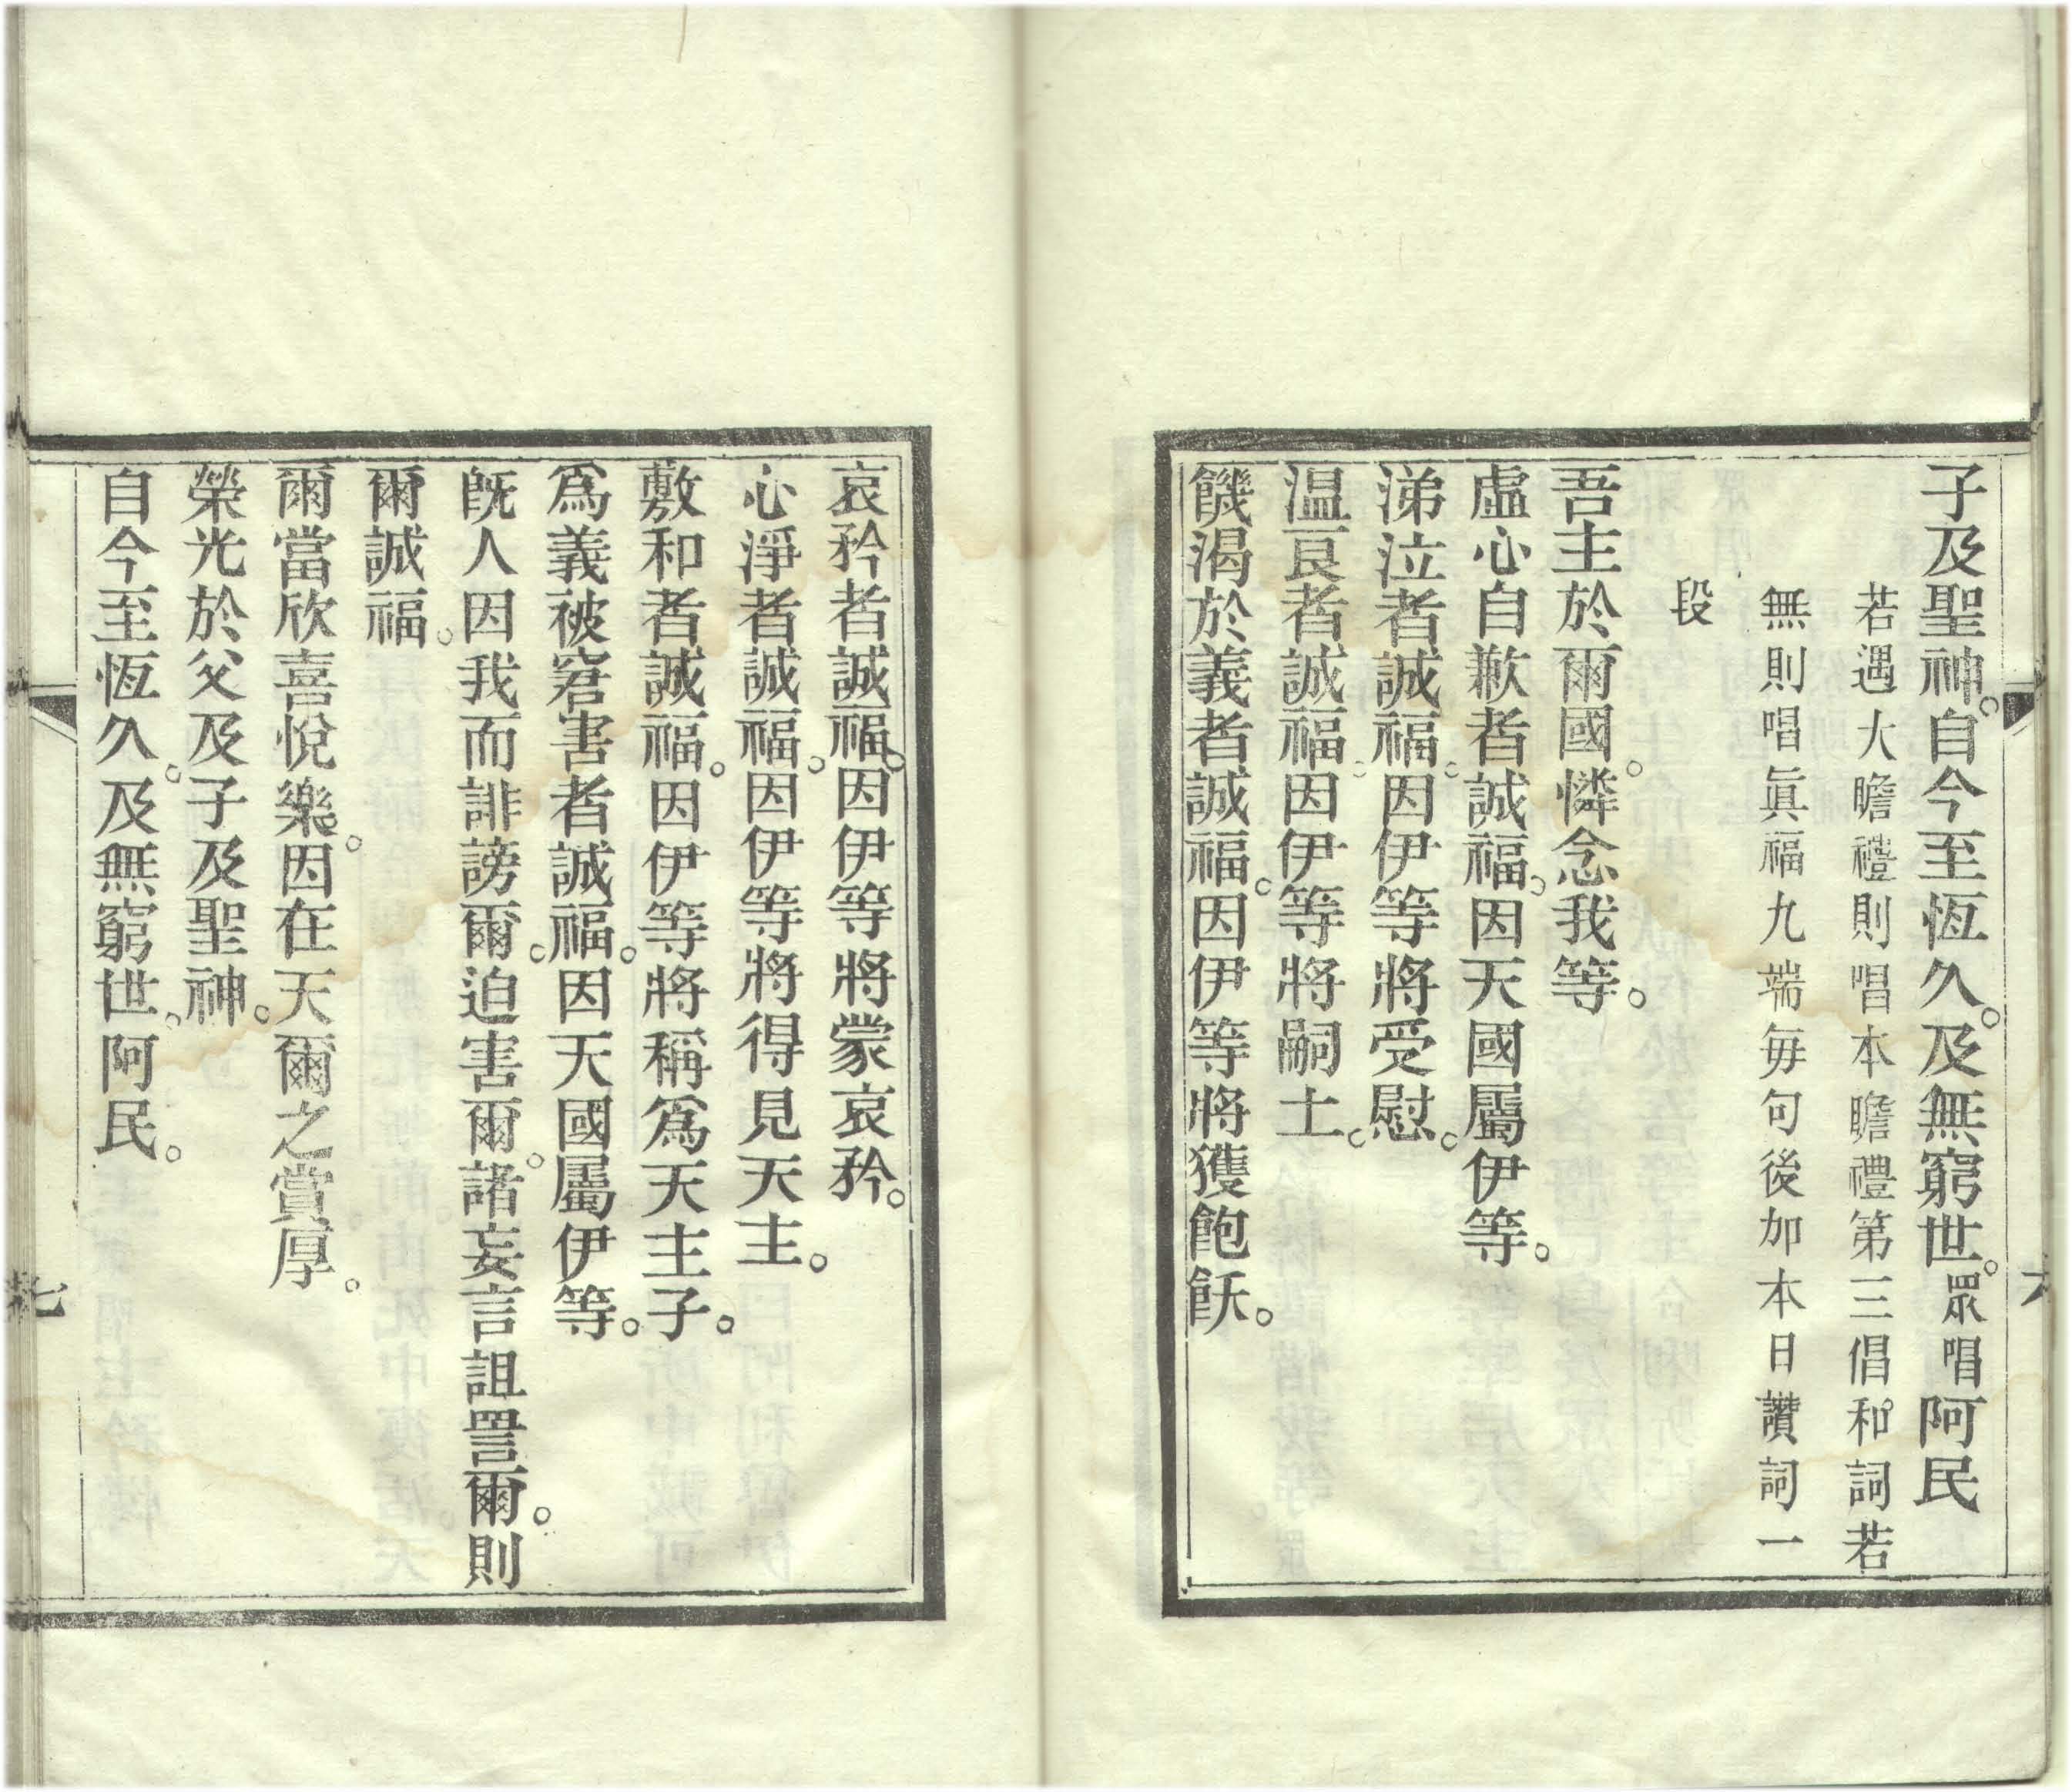 子及聖神。自今至恆久。及無窮世。眾唱阿民
若遇大瞻禮則唱本瞻禮第三倡和詞若
無則唱眞福九端每句後加本日讚詞一
段
吾主於爾國。憐念我等。
虛心自歉者誠福。因天國屬伊等。
涕泣者誠福。因伊等將受慰。
温良者誠福。因伊等將嗣土。
饑渴於義者誠福。因伊等將獲飽飫。
六
哀矜者誠福。因伊等將蒙哀矜。
心淨者誠福。因伊等將得見天主。
敷和者誠福。因伊等將稱爲天主子。
爲義被窘害者誠福。因天國屬伊等。
旣人因我而誹謗爾。迫害爾。諸妄言詛詈爾。則
爾誠福。
爾當欣喜悅樂。因在天爾之賞厚。
榮光於父及子及聖神。
自今至恆久。及無窮世。阿民。
七